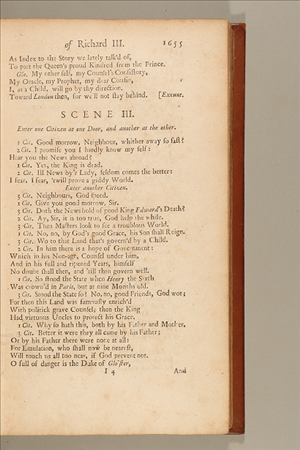 of Richard III. 1655
As Index to the Story we lately talk'd of,
To part the Queen's proud Kindred from the Prince.
Glo. My other self, my Counsel's Consistory,
My Oracle, my Prophet, my dear Cousin,
I, as a Child, will go by thy direction.
Toward London then, for we'll not stay behind. [Exeunt.
SCENE III.
Enter one Citizen at one Door, and another at the other.
1 Cit. Good morrow, Neighbour, whither away so fast?
2 Cit. I promise you I hardly know my self:
Hear you the News abroad?
1 Cit. Yes, the King is dead.
2 Cit. Ill News by'r Lady, seldom comes the better:
I fear, I fear, 'twill prove a giddy World.
Enter another Citizen.
3 Cit. Neighbours, God speed.
1 Cit. Give you good morrow, Sir.
3 Cit. Doth the News hold of good King Edward's Death?
2 Cit. Ay, Sir, it is too true, God help the while.
3 Cit. Then Masters look to see a troublous World.
1 Cit. No, no, by God's good Grace, his Son shall Reign.
3 Cit. Wo to that Land that's govern'd by a Child.
2 Cit. In him there is a hope of Government:
Which in his Non-age, Counsel under him,
And in his full and ripened Years, himself
No doubt shall then, and 'till then govern well.
1 Cit. So stood the State when Henry the Sixth
Was crown'd in Paris, but at nine Months old.
3 Cit. Stood the State so? No, no, good Friends, God wot;
For then this Land was famously enrich'd
With politick grave Counsel; then the King
Had virtuous Uncles to protect his Grace.
1 Cit. Why so hath this, both by his Father and Mother,
3 Cit. Better it were they all came by his Father;
Or by his Father there were none at all:
For Emulation, who shall now be nearest,
Will touch us all too near, if God prevent not.
O full of danger is the Duke of Glo'ster,
I 4 And